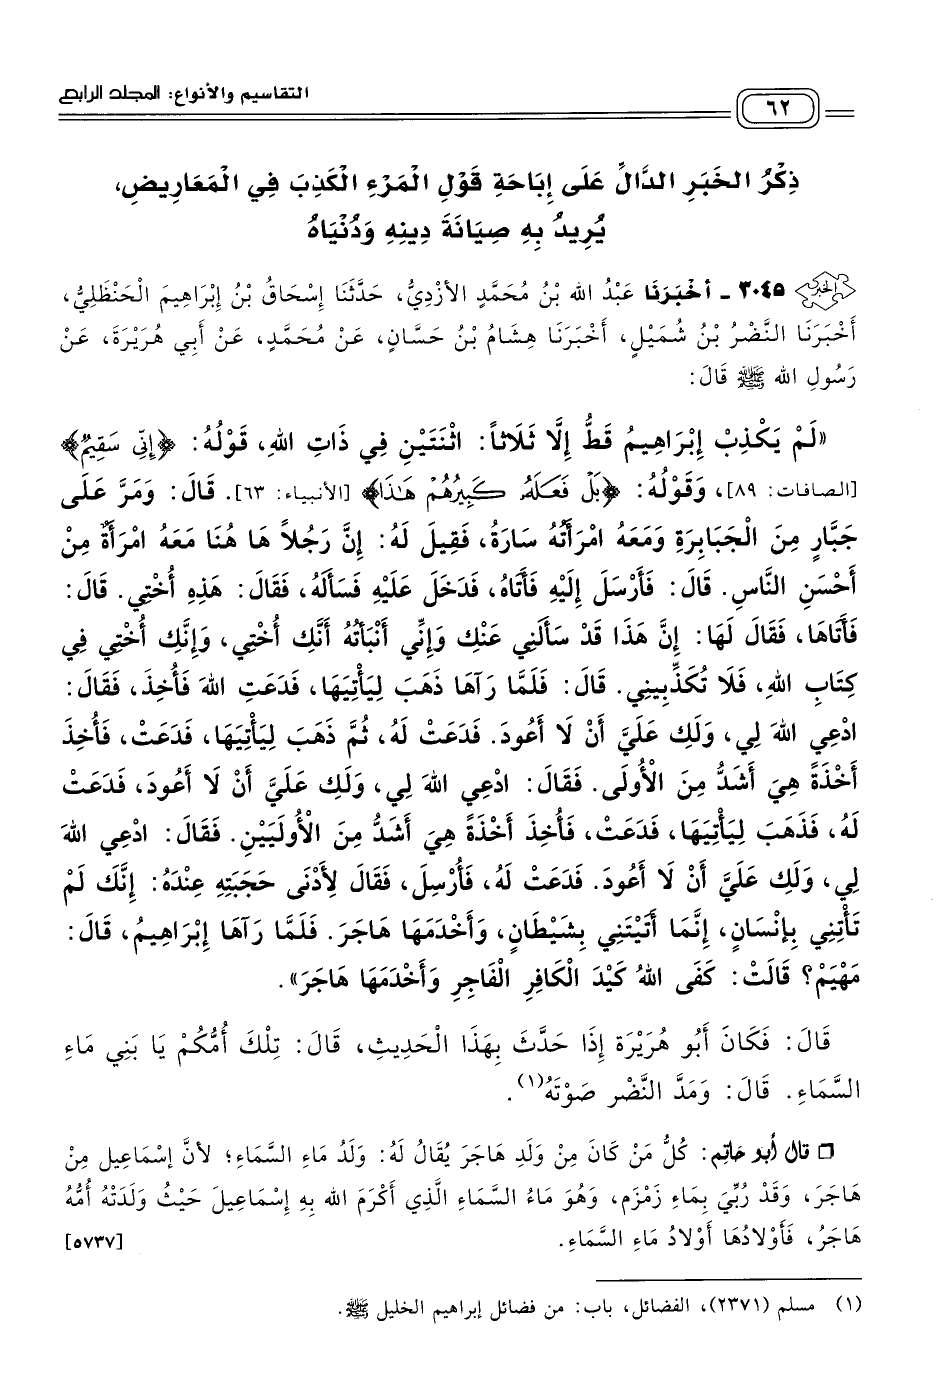 التقاسيم والأنواع: المجلد الرابع
٦٢
ذِكْرُ الخَبَرِ الدَّالِّ عَلَى إِبَاحَةِ قَوْلِ الْمَرْءِ الْكَذِبَ فِي الْمَعَارِيضِ،
يُرِيدُ بِهِ صِيَانَةَ دِينِهِ وَدُنْيَاهُ
الخبر ٣٠٤٥ - أَخْبَرَنَا عَبْدُ الله بْنُ مُحَمَّدٍ الأزْدِيُّ، حَدَّثَنَا إِسْحَاقُ بْنُ إِبْرَاهِيمَ الْحَنْظَلِيُّ،
أَخْبَرَنَا النَّضْرُ بْنُ شُمَيْلٍ، أَخْبَرَنَا هِشَامُ بْنُ حَسَّانٍ، عَنْ مُحَمَّدٍ، عَنْ أَبِي هُرَيْرَةَ، عَنْ
رَسُولِ الله ﷺ قَالَ:
«لَمْ يَكْذِبْ إِبْرَاهِيمُ قَطُّ إِلَّا ثَلَاثاً: اثْنَتَيْنِ فِي ذَاتِ اللهِ، قَوْلُهُ: ﴿إِنِّي سَقِيمٌ﴾
[الصافات: ٨٩]، وَقَوْلُهُ: ﴿بَلْ فَعَلَهُۥ كَبِيرُهُمْ هَٰذَا﴾ [الأنبياء: ٦٣]. قَالَ: وَمَرَّ عَلَى
جَبَّارٍ مِنَ الْجَبَابِرَةِ وَمَعَهُ امْرَأَتُهُ سَارَةُ، فَقِيلَ لَهُ: إِنَّ رَجُلاً هَا هُنَا مَعَهُ امْرَأَةٌ مِنْ
أَحْسَنِ النَّاسِ. قَالَ: فَأَرْسَلَ إِلَيْهِ فَأَتَاهُ، فَدَخَلَ عَلَيْهِ فَسَأَلَهُ، فَقَالَ: هَذِهِ أُخْتِي. قَالَ:
فَأَتَاهَا، فَقَالَ لَهَا: إِنَّ هَذَا قَدْ سَأَلَنِي عَنْكِ وَإِنِّي أَنْبَأْتُهُ أَنَّكِ أُخْتِي، وَإِنَّكِ أُخْتِي فِي
كِتَابِ اللهِ، فَلَا تُكَذِّبِينِي. قَالَ: فَلَمَّا رَآهَا ذَهَبَ لِيَأْتِيَهَا، فَدَعَتِ اللهَ فَأُخِذَ، فَقَالَ:
ادْعِي اللهَ لِي، وَلَكِ عَلَيَّ أَنْ لَا أَعُودَ. فَدَعَتْ لَهُ، ثُمَّ ذَهَبَ لِيَأْتِيَهَا، فَدَعَتْ، فَأُخِذَ
أَخْذَةً هِيَ أَشَدُّ مِنَ الْأُولَى. فَقَالَ: ادْعِي اللهَ لِي، وَلَكِ عَلَيَّ أَنْ لَا أَعُودَ، فَدَعَتْ
لَهُ، فَذَهَبَ لِيَأْتِيَهَا، فَدَعَتْ، فَأُخِذَ أَخْذَةً هِيَ أَشَدُّ مِنَ الْأُولَيَيْنِ. فَقَالَ: ادْعِي اللهَ
لِي، وَلَكِ عَلَيَّ أَنْ لَا أَعُودَ. فَدَعَتْ لَهُ، فَأُرْسِلَ، فَقَالَ لِأَدْنَى حَجَبَتِهِ عِنْدَهُ: إِنَّكَ لَمْ
تَأْتِنِي بِإِنْسَانٍ، إِنَّمَا أَتَيْتَنِي بِشَيْطَانٍ، وَأَخْدَمَهَا هَاجَرَ. فَلَمَّا رَآهَا إِبْرَاهِيمُ، قَالَ:
مَهْيَمْ؟ قَالَتْ: كَفَى اللهُ كَيْدَ الْكَافِرِ الْفَاجِرِ وَأَخْدَمَهَا هَاجَرَ».
قَالَ: فَكَانَ أَبُو هُرَيْرَة إِذَا حَدَّثَ بِهَذَا الْحَدِيثِ، قَالَ: تِلْكَ أُمُّكُمْ يَا بَنِي مَاءِ
السَّمَاءِ. قَالَ: وَمَدَّ النَّضْر صَوْتَهُ(١).
❒ قال أبو حاتِم: كُلُّ مَنْ كَانَ مِنْ وَلَدِ هَاجَرَ يُقَالُ لَهُ: وَلَدُ مَاءِ السَّمَاءِ؛ لأنَّ إسْمَاعِيل مِنْ
هَاجَرَ، وَقَدْ رُبِّيَ بِمَاءِ زَمْزَم، وَهُوَ مَاءُ السَّمَاءِ الَّذِي أَكْرَمَ الله بِهِ إِسْمَاعِيلَ حَيْثُ وَلَدَتْهُ أُمُّهُ
هَاجَرُ، فَأَوْلَادُهَا أَوْلَادُ مَاءِ السَّمَاءِ. [٥٧٣٧]
(١) مسلم (٢٣٧١)، الفضائل، باب: من فضائل إبراهيم الخليل ﷺ.